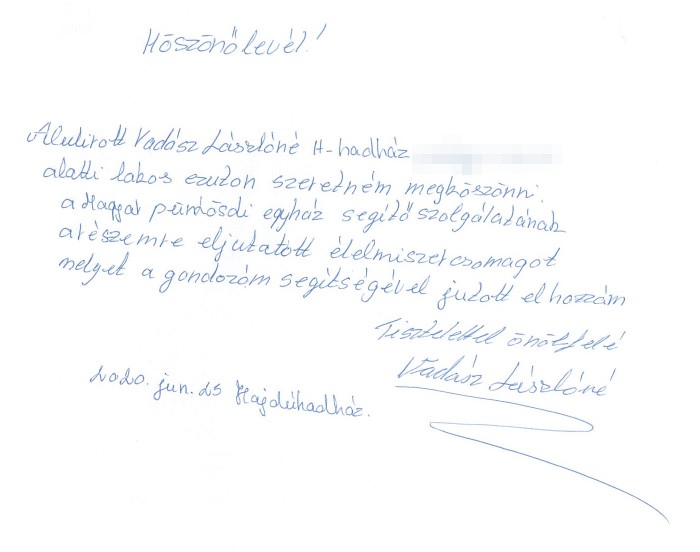 Hōszönő levél!
Alulirott Vadász Lászlóné H-hadház
alatti lakos ezuton szeretném megköszönni.
a Magyar pünkösdi egyház segitő szolgálatának
a részemre eljutatott élelmiszercsomagot
melyet a gondozóm segitségével jutott el hozzám
Tisztelettel önök felé
Vadász Lászlóné
2020. jun. 25 Hajdúhadház.